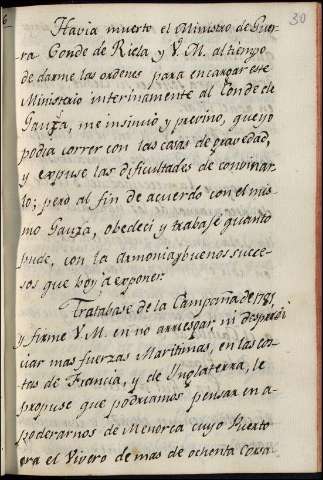 30
Havia muerto el Ministro de Guer-
ra Conde de Ricla y V. M. al tiempo
de darme las ordenes para encargar este
Ministerio interinamente al Conde de
Gauza, me insinuó y previno, que yo
podia correr con las cosas de gravedad,
y expuse las dificultades de convinar-
lo; pero al fin de acuerdo con el mis-
mo Gauza, obedeci y trabajé quanto
pude, con la armonia y buenos suce-
sos que voy á exponer.
Tratabase de la Campaña de 1781,
y firme V. M. en no arriesgar, ni desperdi-
ciar mas fuerzas Maritimas, en las cos-
tas de Francia, y de Ynglaterra, le
propuse que podriamos pensar en a-
poderarnos de Menorca cuyo Puerto
era el Vivero de mas de ochenta Corsa-